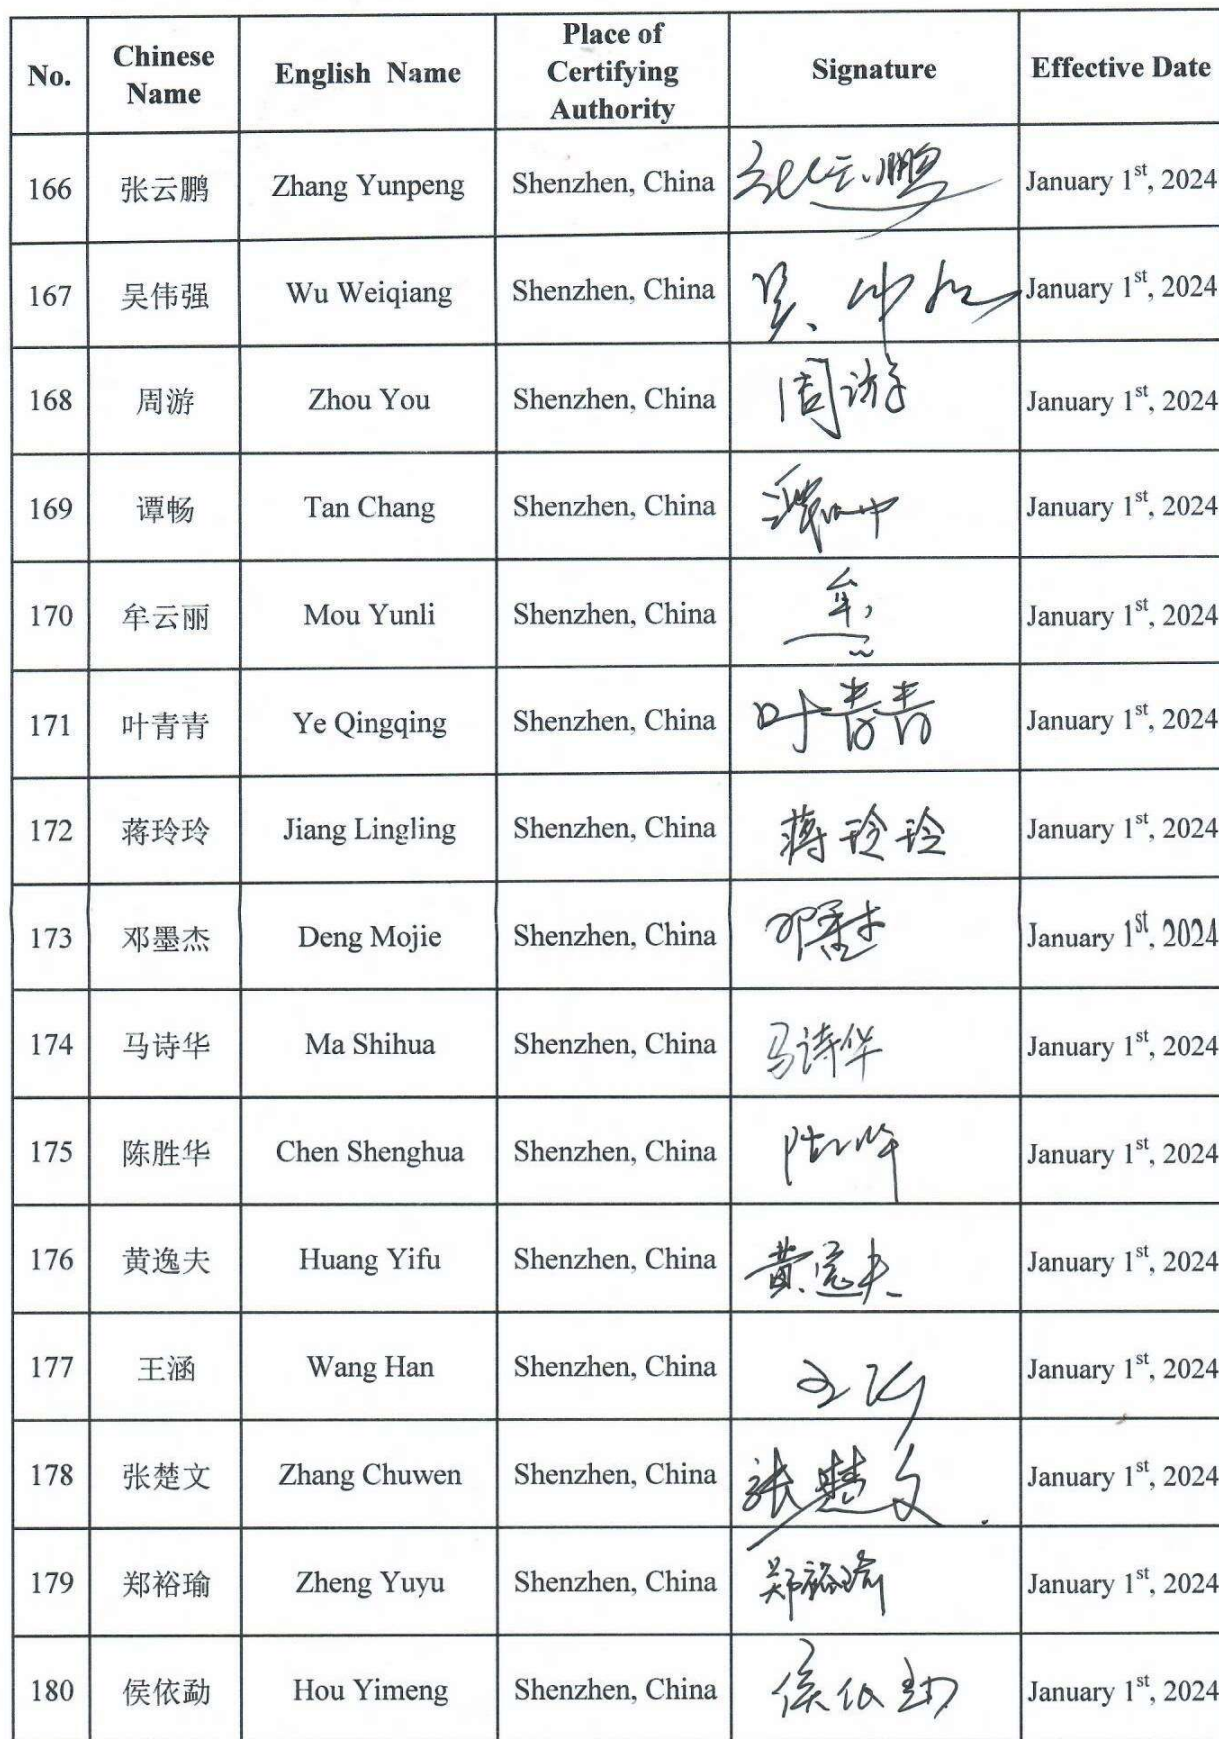 No. Chinese Name English Name Place of Certifying Authority Signature Effective Date
166 张云鹏 Zhang Yunpeng Shenzhen, China 张云鹏 January 1st, 2024
167 吴伟强 Wu Weiqiang Shenzhen, China January 1st, 2024
168 周游 Zhou You Shenzhen, China 周游 January 1st, 2024
169 谭畅 Tan Chang Shenzhen, China January 1st, 2024
170 牟云丽 Mou Yunli Shenzhen, China January 1st, 2024
171 叶青青 Ye Qingqing Shenzhen, China 叶青青 January 1st, 2024
172 蒋玲玲 Jiang Lingling Shenzhen, China 蒋玲玲 January 1st, 2024
173 邓墨杰 Deng Mojie Shenzhen, China 邓墨杰 January 1st, 2024
174 马诗华 Ma Shihua Shenzhen, China 马诗华 January 1st, 2024
175 陈胜华 Chen Shenghua Shenzhen, China January 1st, 2024
176 黄逸夫 Huang Yifu Shenzhen, China 黄逸夫 January 1st, 2024
177 王涵 Wang Han Shenzhen, China January 1st, 2024
178 张楚文 Zhang Chuwen Shenzhen, China 张楚文 January 1st, 2024
179 郑裕瑜 Zheng Yuyu Shenzhen, China 郑裕瑜 January 1st, 2024
180 侯依勐 Hou Yimeng Shenzhen, China 侯依勐 January 1st, 2024